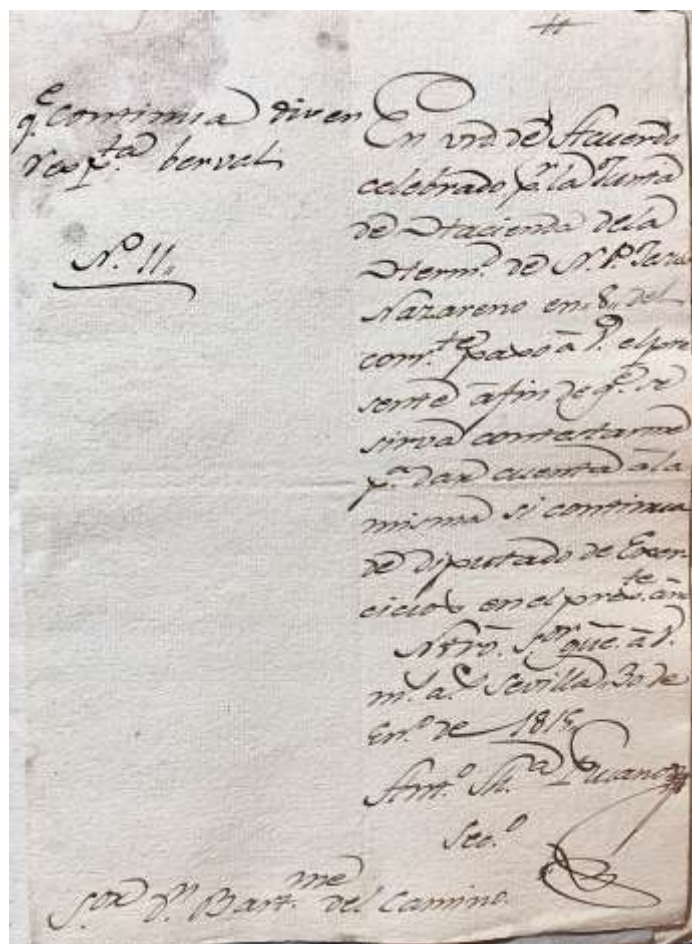 q.e continua dio en
resp.ta berval
N.o 11,,
En vrd. de Acuerdo
celebrado p.r la Junta
de Hacienda dela
Herm.d de N. P. Jesus
Nazareno en,,8,, del
corr.te paso à V. el pre
sente àfin de q.e se
sirva contestarme
p.a dar cuenta àla
misma si continua
de diputado de Exer
cicios en el pres.te año
Ntrō. S.or gūe. à V.
m.s a.s Sevilla 30 de
En.o de 1815,,
Ant.o M.a
Sec.o
S.or D.n Bart.me del Camino.